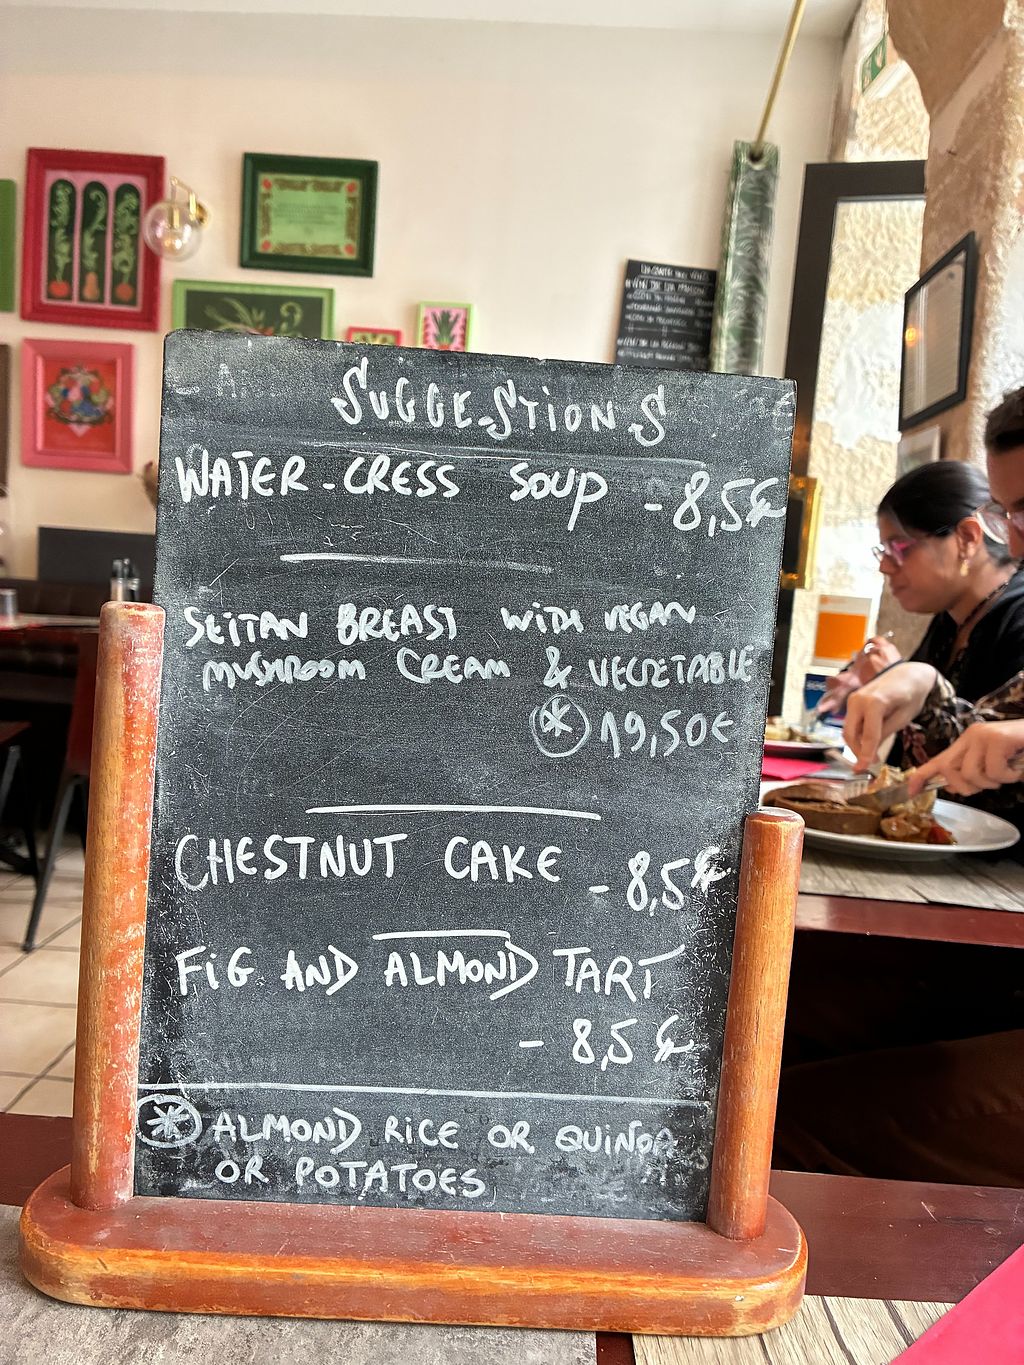 SUGGESTIONS
WATER-CRESS SOUP - 8,5€
SEITAN BREAST WITH VEGAN
MUSHROOM CREAM & VEGETABLE
* 19,50€
CHESTNUT CAKE - 8,5€
FIG AND ALMOND TART
- 8,5€
* ALMOND RICE OR QUINOA
OR POTATOES